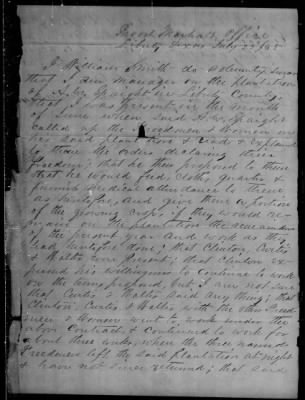 Provost Marshal's Office
Liberty Texas July 22/65
I William Smith do solemnly swear
that I am manager on the plantation
of A. W. Spaight in Liberty County;
that I was present in the month
of June when said A. W. Spaight
called up the Freedmen & women on
his said plantation & read & explained
to them the order declaring their
freedom; that he then proposed to them
that he would feed, clothe, quarter &
furnish medical attendance to them
as heretofore, and give them a portion
of the growing crops if they would re-
main on the plantation the remainder
of the present year and work as they
had heretofore done; that Clinton, Curtis
& Wallis were present; that Clinton ex-
pressed his willingness to continue to work
on the terms proposed, but I am not sure
that Curtis & Wallis said any thing; that
Clinton, Curtis & Wallis with the other Freed-
men & women went to work under the
above Contract & continued to work for
about three weeks, when the three named
Freedmen left the said plantation at night
& have not since returned; that said